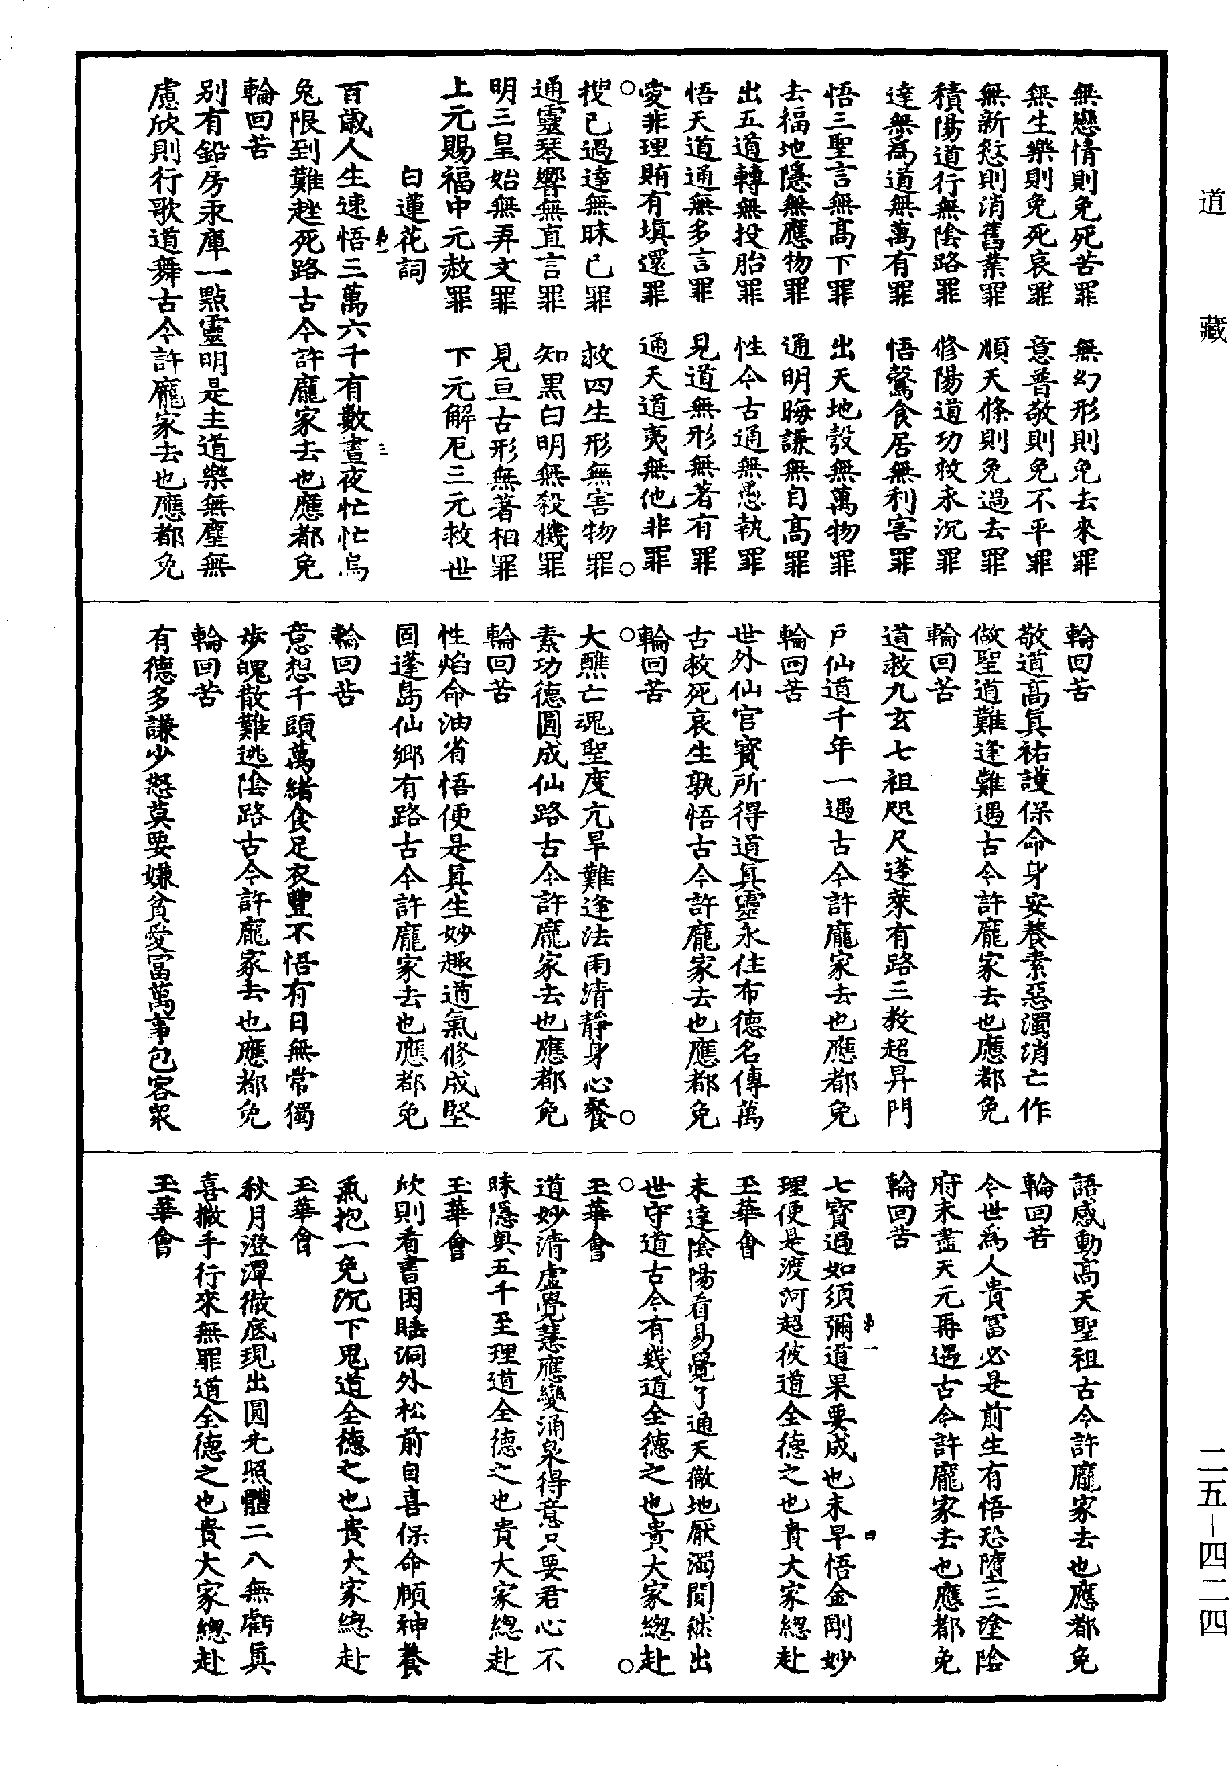 道藏
無戀情則免死苦罪　無幻形則免去來罪
無生樂則免死哀罪　意普敬則免不平罪
無新愆則消舊業罪　順天條則免過去罪
積陽道行無陰路罪　修陽道功救永沉罪
達無為道無萬有罪　悟鶩食居無利害罪
悟三聖言無高下罪　出天地彀無萬物罪
去福地隱無應物罪　通明晦謙無自高罪
出五道轉無投胎罪　性今古通無愚執罪
悟天道通無多言罪　見道無形無著有罪
愛非理賄有填還罪　通天道夷無他非罪
搜己過達無昧己罪　救四生形無害物罪
通靈琴響無直言罪　知黑白明無殺機罪
明三皇始無弄文罪　見亘古形無著相罪
上元賜福中元赦罪　下元解厄三元救世
白蓮花詞
百歲人生速悟三萬六千有數晝夜忙忙烏
兔限到難挫死路古今許龐家去也應都免
輪回苦
別有鉛房汞庫一點靈明是主道樂無塵無
慮欣則行歌道舞古今許龐家去也應都免
輪回苦
敬道高真祐護保命身安養素惡濁消亡作
做聖道難逢難遇古今許龐家去也應都免
輪回苦
道救九玄七祖咫尺蓬萊有路三教超昇門
戶仙道千年一遇古今許龐家去也應都免
輪回苦
世外仙官寶所得道真靈永住布德名傳萬
古救死哀生孰悟古今許龐家去也應都免
輪回苦
大醮亡魂聖度亢旱難逢法雨清靜身心餐
素功德圓成仙路古今許龐家去也應都免
輪回苦
性焰命油省悟便是真生妙趣道氣修成堅
固蓬島仙鄉有路古今許龐家去也應都免
輪回苦
意想千頭萬緒食足衣豐不悟有日無常獨
步魄散難逃陰路古今許龐家去也應都免
輪回苦
有德多謙少怒莫要嫌貧愛富萬事包容眾
語感動高天聖祖古今許龐家去也應都免
輪回苦
今世為人貴富必是前生有悟恐墮三塗陰
府末盡天元再遇古今許龐家去也應都免
輪回苦
第一　四
七寶過如須彌道果要成也未早悟金剛妙
理便是渡河超彼道全德之也貴大家總赴
玉華會
未達陰陽看易覺了通天徹地厭濁閴然出
世守道古今有幾道全德之也貴大家總赴
玉華會
道妙清虛覺慧應變涌泉得意只要君心不
昧隱奧五千至理道全德之也貴大家總赴
玉華會
欣則看書困睡洞外松前自喜保命頤神養
氣抱一免沉下鬼道全德之也貴大家總赴
玉華會
秋月澄潭徹底現出圓光照體二八無虧真
喜撒手行來無罪道全德之也貴大家總赴
玉華會
二五－四二四